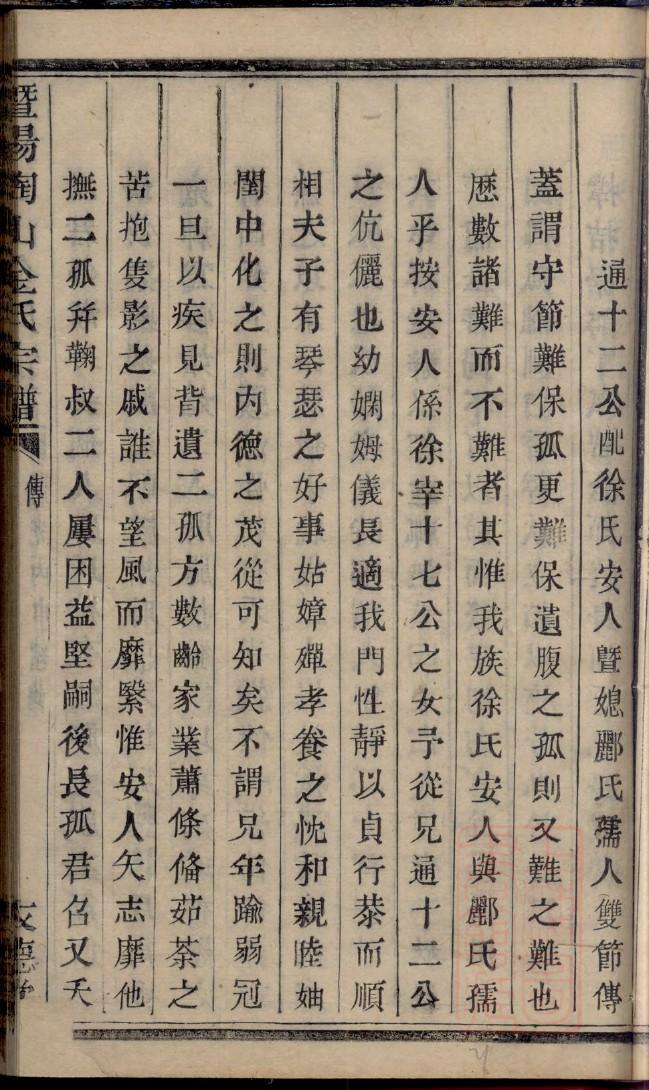 通十二公配徐氏安人暨媳酈氏孺人雙節傳
蓋謂守節難保孤更難保遺腹之孤則又難之難也
歷數諸難而不難者其惟我族徐氏安人與酈氏孺
人乎按安人係徐宰十七公之女予從兄通十二公
之伉儷也幼嫻姆儀長適我門性靜以貞行恭而順
相夫子有琴瑟之好事姑嫜殫孝養之忱和親睦妯
閨中化之則內德之茂從可知矣不謂兄年踰弱冠
一旦以疾見背遺二孤方數齡家業蕭條俻茹荼之
苦抱隻影之戚誰不望風而靡緊惟安人矢志靡他
撫二孤并鞠叔二人屢困益堅嗣後長孤君名又夭
暨陽陶山金氏宗譜
傳